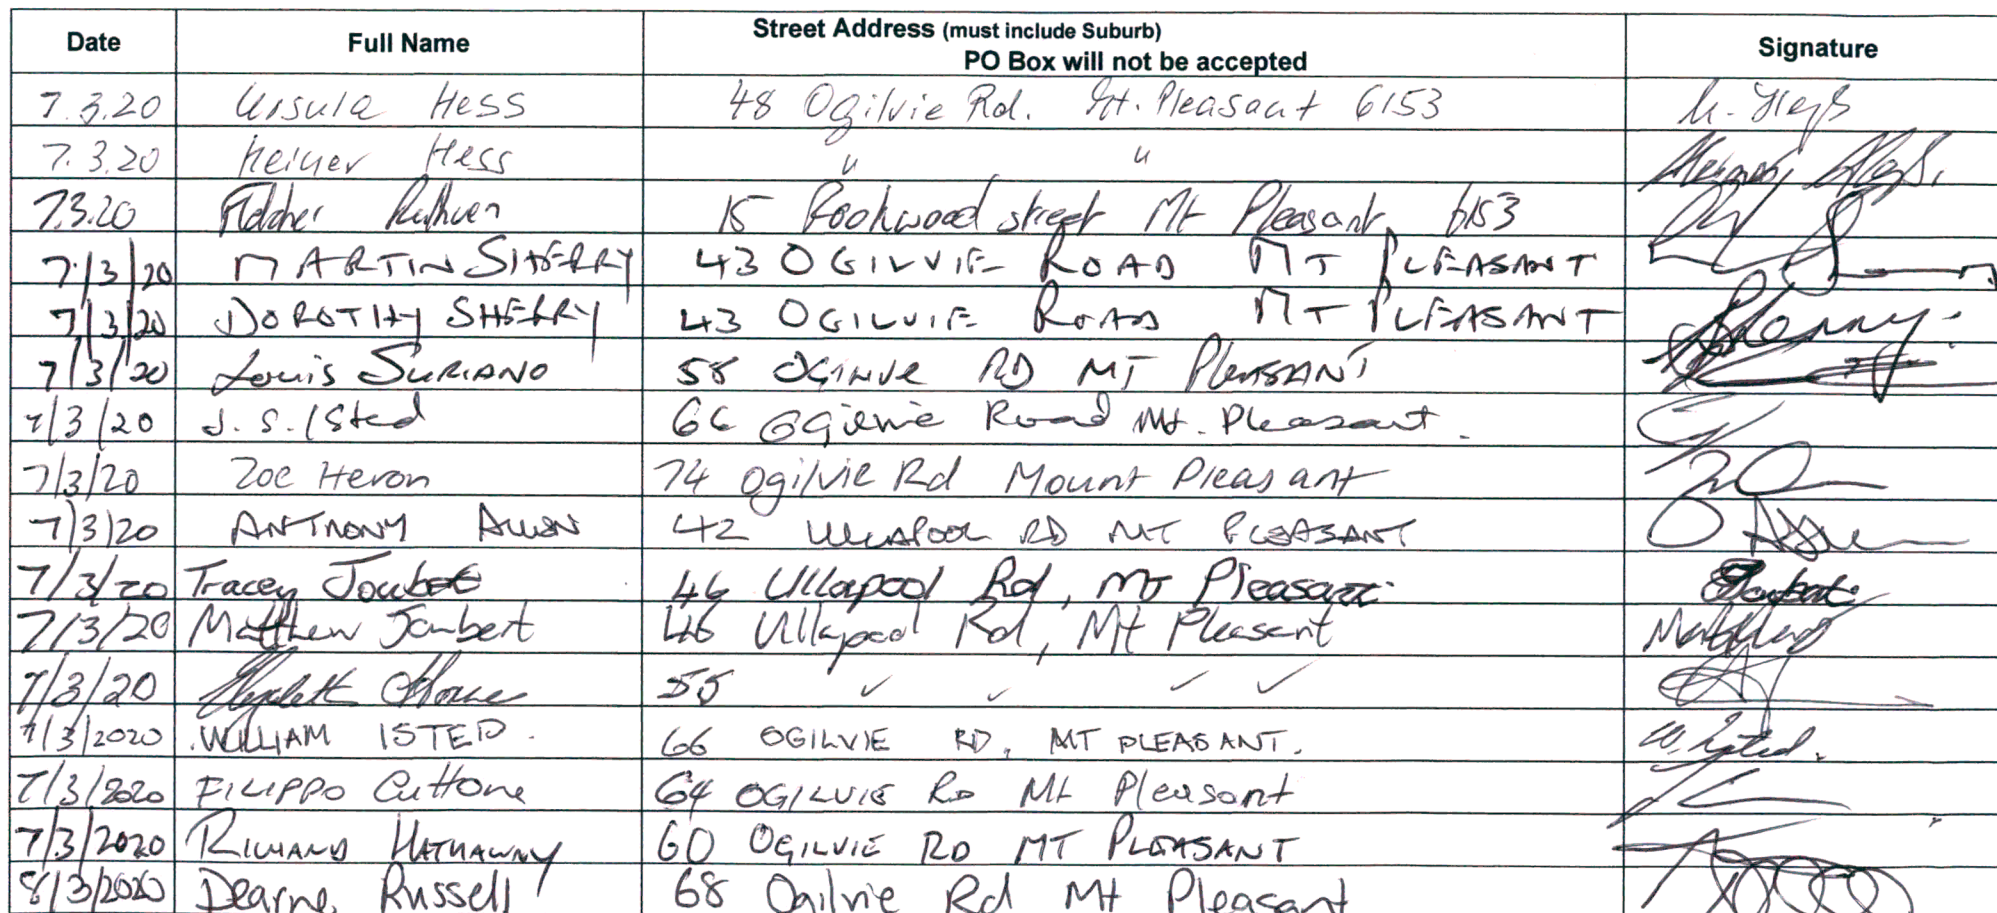 Date Full Name Street Address (must include Suburb) Signature
PO Box will not be accepted
7.3.20 Ursula Hess 48 Ogilvie Rd. Mt. Pleasant 6153 U. Hess
7.3.20 Heiner Hess " "
7.3.20 Fletcher Ruthven 15 Rookwood street Mt Pleasant 6153
7/3/20 MARTIN SHERRY 43 OGILVIE ROAD MT PLEASANT
7/3/20 DOROTHY SHERRY 43 OGILVIE ROAD MT PLEASANT
7/3/20 Louis SURIANO 58 OGILVIE RD MT PLEASANT
7/3/20 J. S. Isted 66 Ogilvie Road Mt. Pleasant.
7/3/20 Zoe Heron 74 Ogilvie Rd Mount Pleasant
7/3/20 ANTHONY ALLEN 42 ULLAPOOL RD MT PLEASANT
7/3/20 Tracey Joubert 46 Ullapool Rd, Mt Pleasant Joubert
7/3/20 Matthew Joubert 46 Ullapool Rd, Mt Pleasant
7/3/20 Elizabeth 55 ✓ ✓ ✓ ✓
7/3/2020 WILLIAM ISTED. 66 OGILVIE RD, MT PLEASANT. W. Isted.
7/3/2020 FILIPPO Cuttone 64 OGILVIE RD Mt Pleasant
7/3/2020 RICHARD HATHAWAY 60 OGILVIE RD MT PLEASANT
8/3/2020 Dearne Russell 68 Ogilvie Rd Mt Pleasant